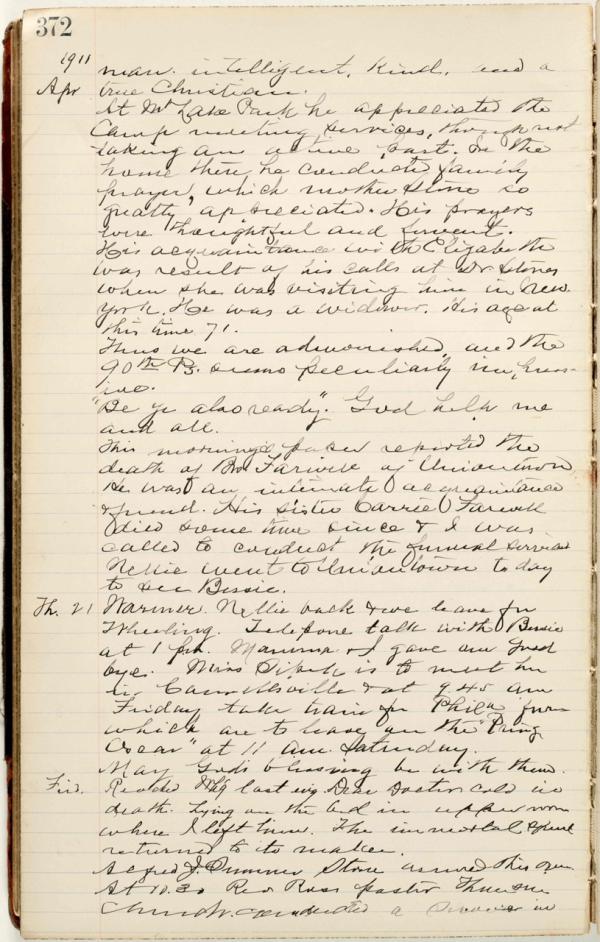 372
1911
man. intelligent, kind, and a
Apr true Christian.
At Mt Lake Park he appreciated the
Camp meeting services, though not
taking an active part. In the
home there he conducted family
prayer, which mother Stone so
greatly appreciated. His prayers
were thoughtful and fervent.
His acquaintance with Elizabeth
was result of his calls at Dr Stones
when she was visiting him in New
York. He was a widower. His age at
this time 71.
Thus we are admonished, and the
90th Ps. seems peculiarly impress-
ive.
"Be ye also ready". God help me
and all.
This mornings paper reported the
death of Bro Farwell of Uniontown
He was an intimate acquaintance
& friend. His sister Carrie Farwell
died some time since & I was
called to conduct the funeral services
Nellie went to Uniontown today
to see Bessie.
Th. 21 Warmer. Nellie back & we leave for
Wheeling. Telepone talk with Bessie
at 1 pm. Mamma & I gave our good
byes. Miss is to meet her
in Connellsville & at 9.45 am
Friday take train for Phila from
which are to leave on the "Prinz
Oscar" at 11 am. Saturday.
May Gods blessing be with them.
Frid. Reached Whg last evg. Dear Doctor cold in
death. Lying on the bed in upper room
where I left him. The immortal spirit
returned to its maker.
Alfred J. Sumner Stone arrived this
At 10.30 Rev Ross pastor
Church. conducted a service in